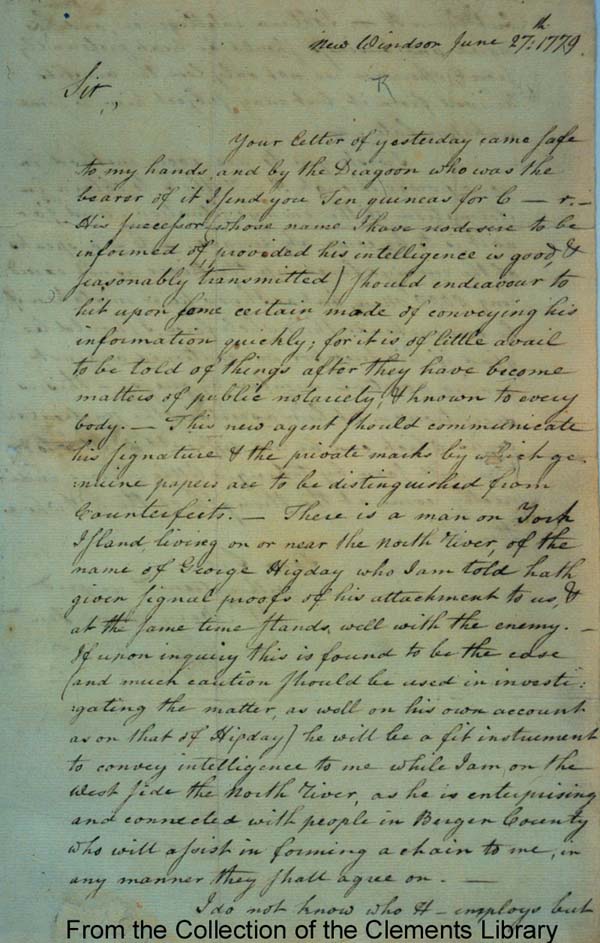 New Windsor June 27th: 1779.
Sir
Your letter of yesterday came safe
to my hands, and by the Dragoon who was the
bearer of it I send you Ten guineas for C — r. —
His successor (whose name I have no desire to be
informed of, provided his intelligence is good, &
seasonably transmitted) should endeavour to
hit upon some certain mode of conveying his
information quickly; for it is of little avail
to be told of things after they have become
matters of public notoriety, & known to every
body. — This new agent should communicate
his signature & the private marks by which ge-
nuine papers are to be distinguished from
Counterfeits. — There is a man on York
Island, living on or near the North River, of the
name of George Higday who I am told hath
given signal proofs of his attachment to us, &
at the same time stands well with the enemy. —
If upon inquiry this is found to be the case
(and much caution should be used in investi:
:gating the matter, as well on his own account
as on that of Higday) he will be a fit instrument
to convey intelligence to me while I am on the
West side the North River, as he is enterprising
and connected with people in Bergen County
who will assist in forming a chain to me, in
any manner they shall agree on. —
I do not know who H— employs but
From the Collection of the Clements Library